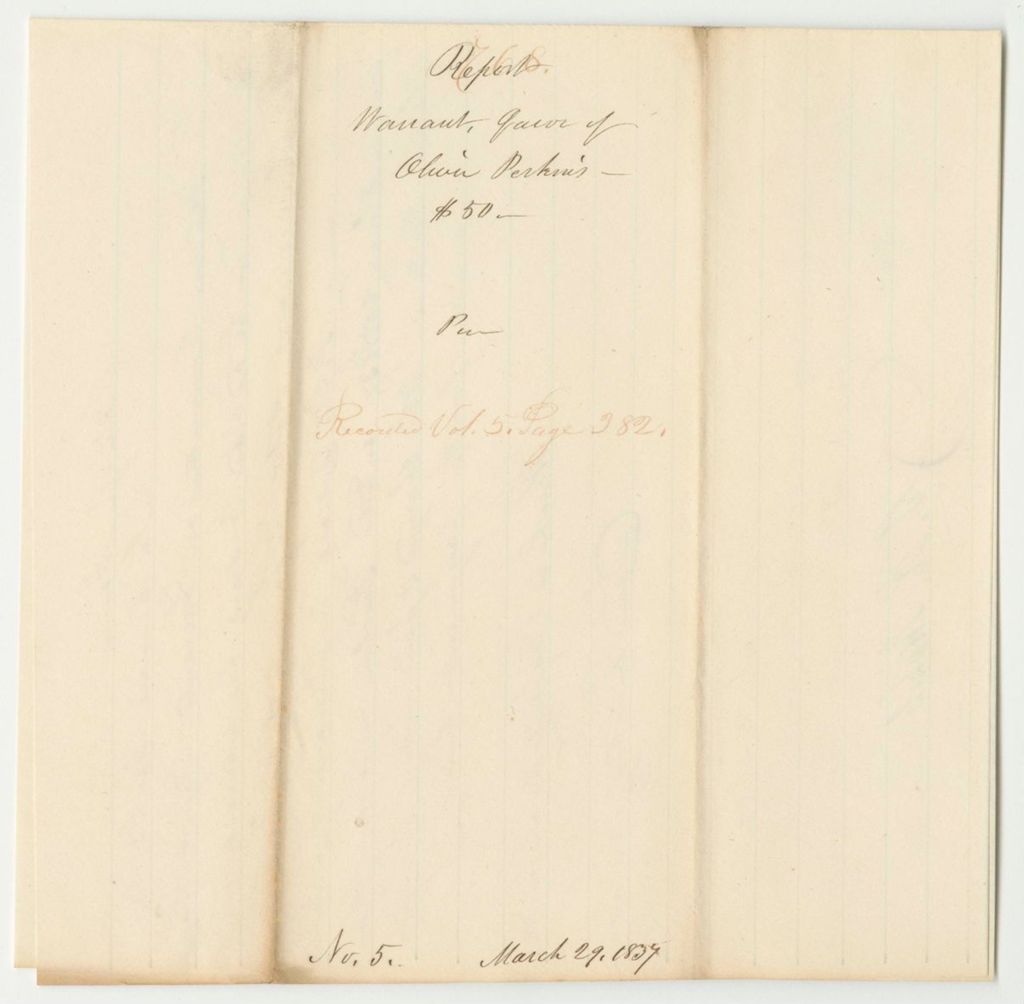 Report
Warrant, favor of
Oliver Perkins —
$50.—
Recorded Vol. 5. Page 382.
No. 5. March 29. 1837